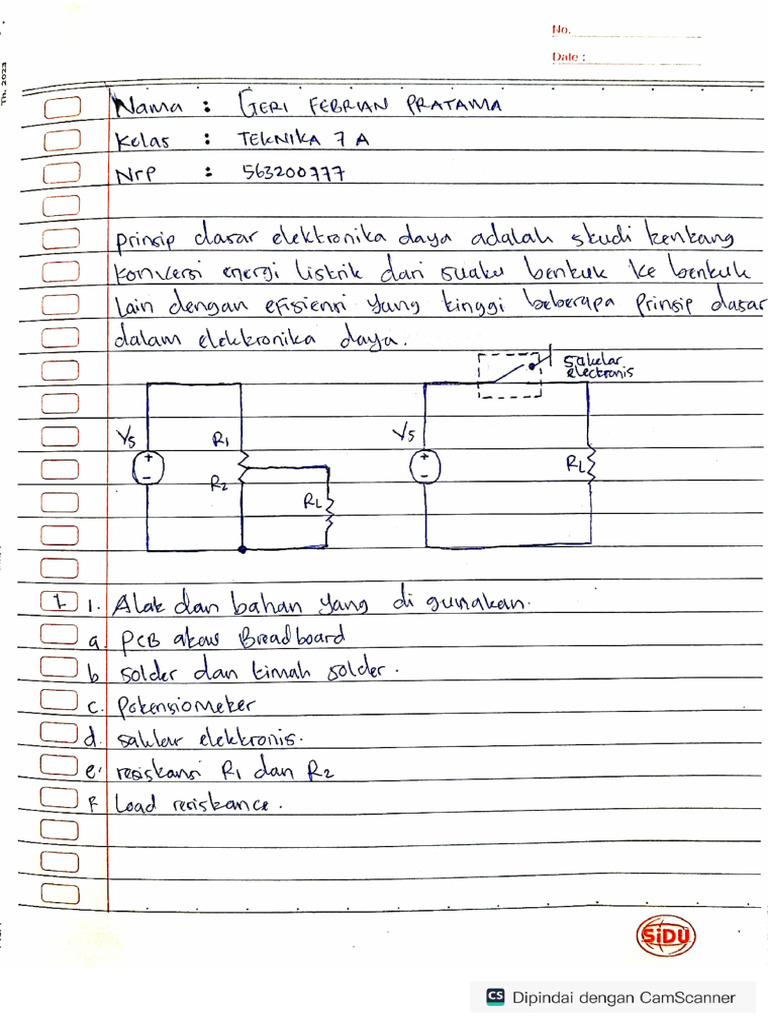 No.
Date :
Th. 2023
Nama : GERI FEBRIAN PRATAMA
Kelas : TEKNIKA 7 A
Nrp : 563200777
prinsip dasar elektronika daya adalah studi tentang
konversi energi listrik dari suatu bentuk ke bentuk
lain dengan efisiensi yang tinggi beberapa prinsip dasar
dalam elektronika daya.
sakelar
electronis
Vs
R1
Vs
+
-
R2
RL
+
-
RL
1 1. Alat dan bahan yang di gunakan.
a. PCB atau Breadboard
b solder dan timah solder.
c. Potensiometer
d. saklar elektronis.
e. resistansi R1 dan R2
F Load resistance.
SiDU
CS Dipindai dengan CamScanner